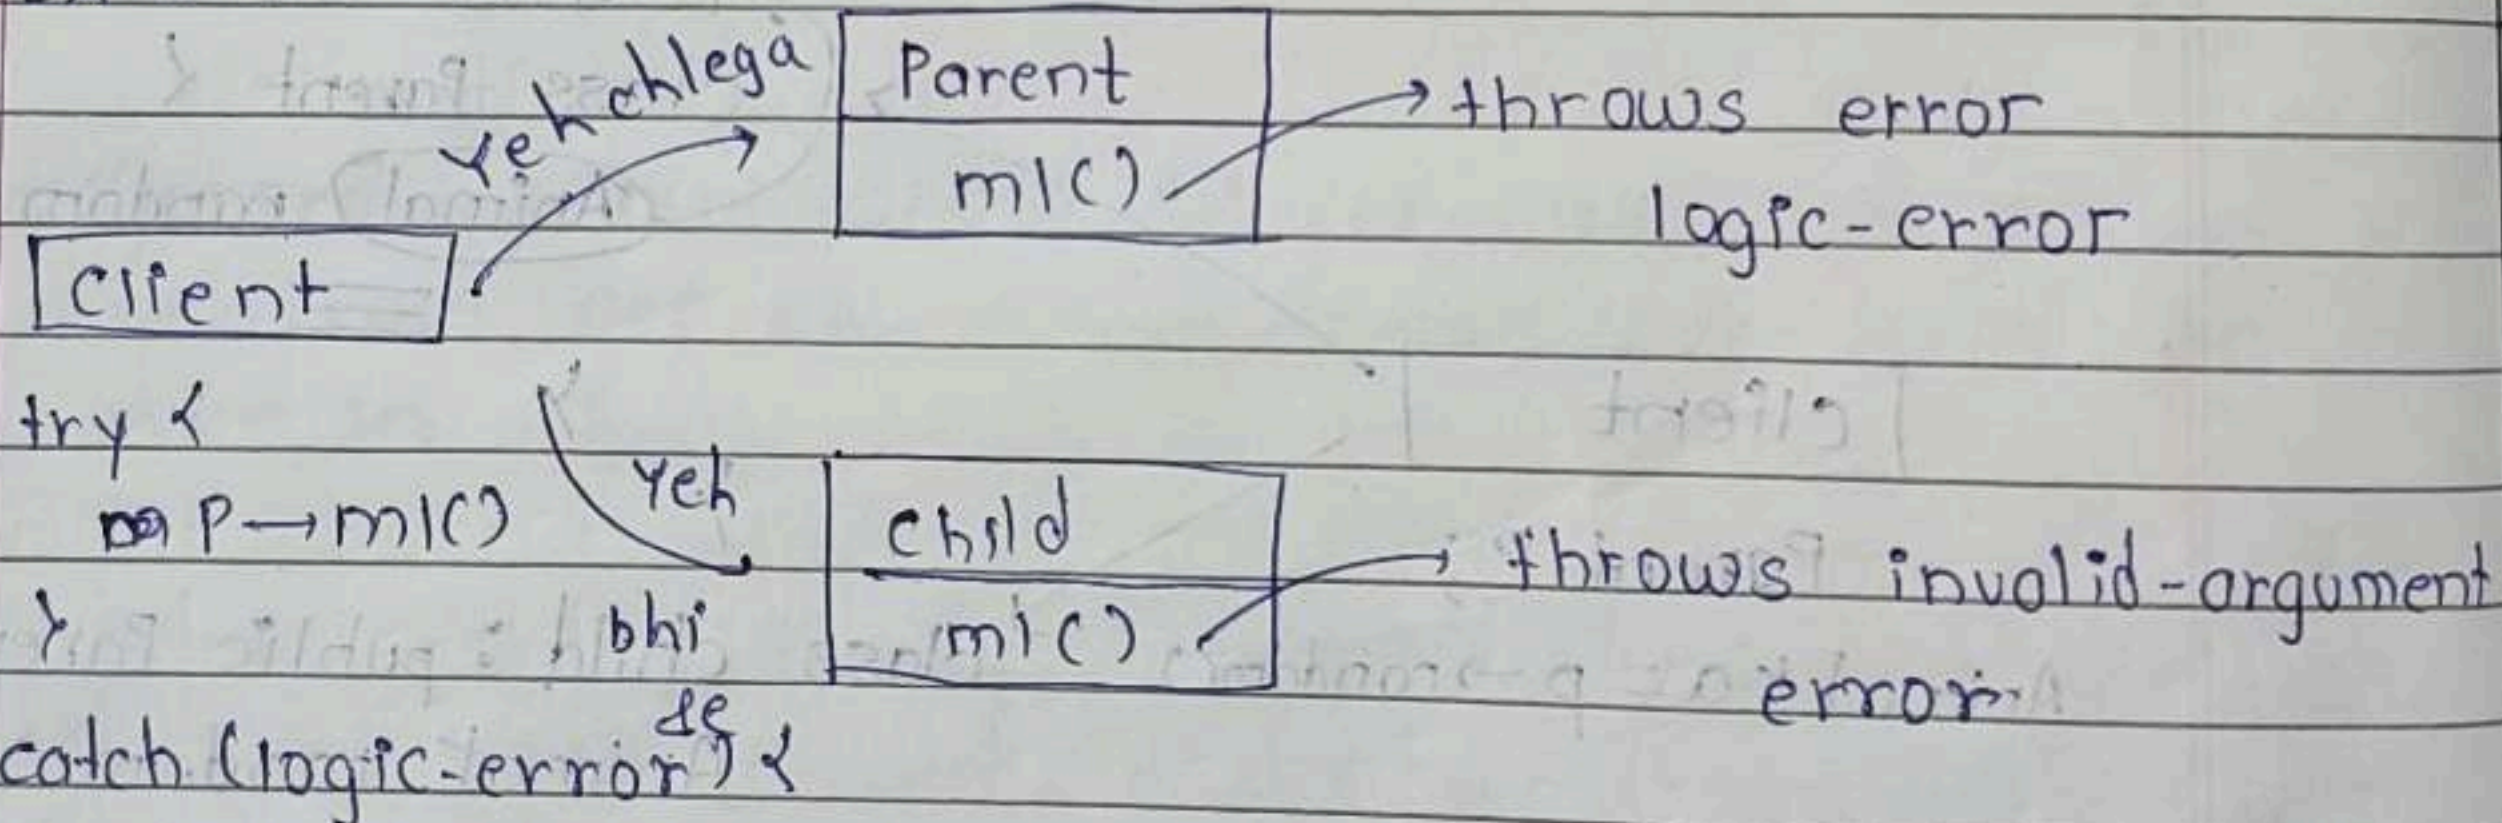 Parent
m1()
yeh chlega
throws error
logic-error
Client
try {
P→m1()
}
yeh
bhi
child
m1()
throws invalid-argument
error
catch (logic-error &e) {